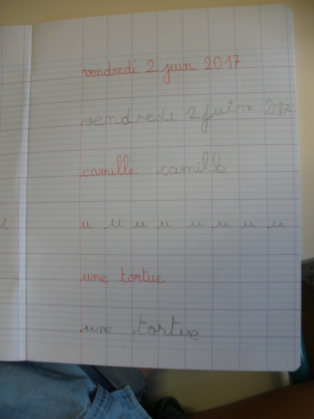 vendredi 2 juin 2017
vendredi 2 juin 2017
camille camille
u u u u u u u u
une tortue
une tortue